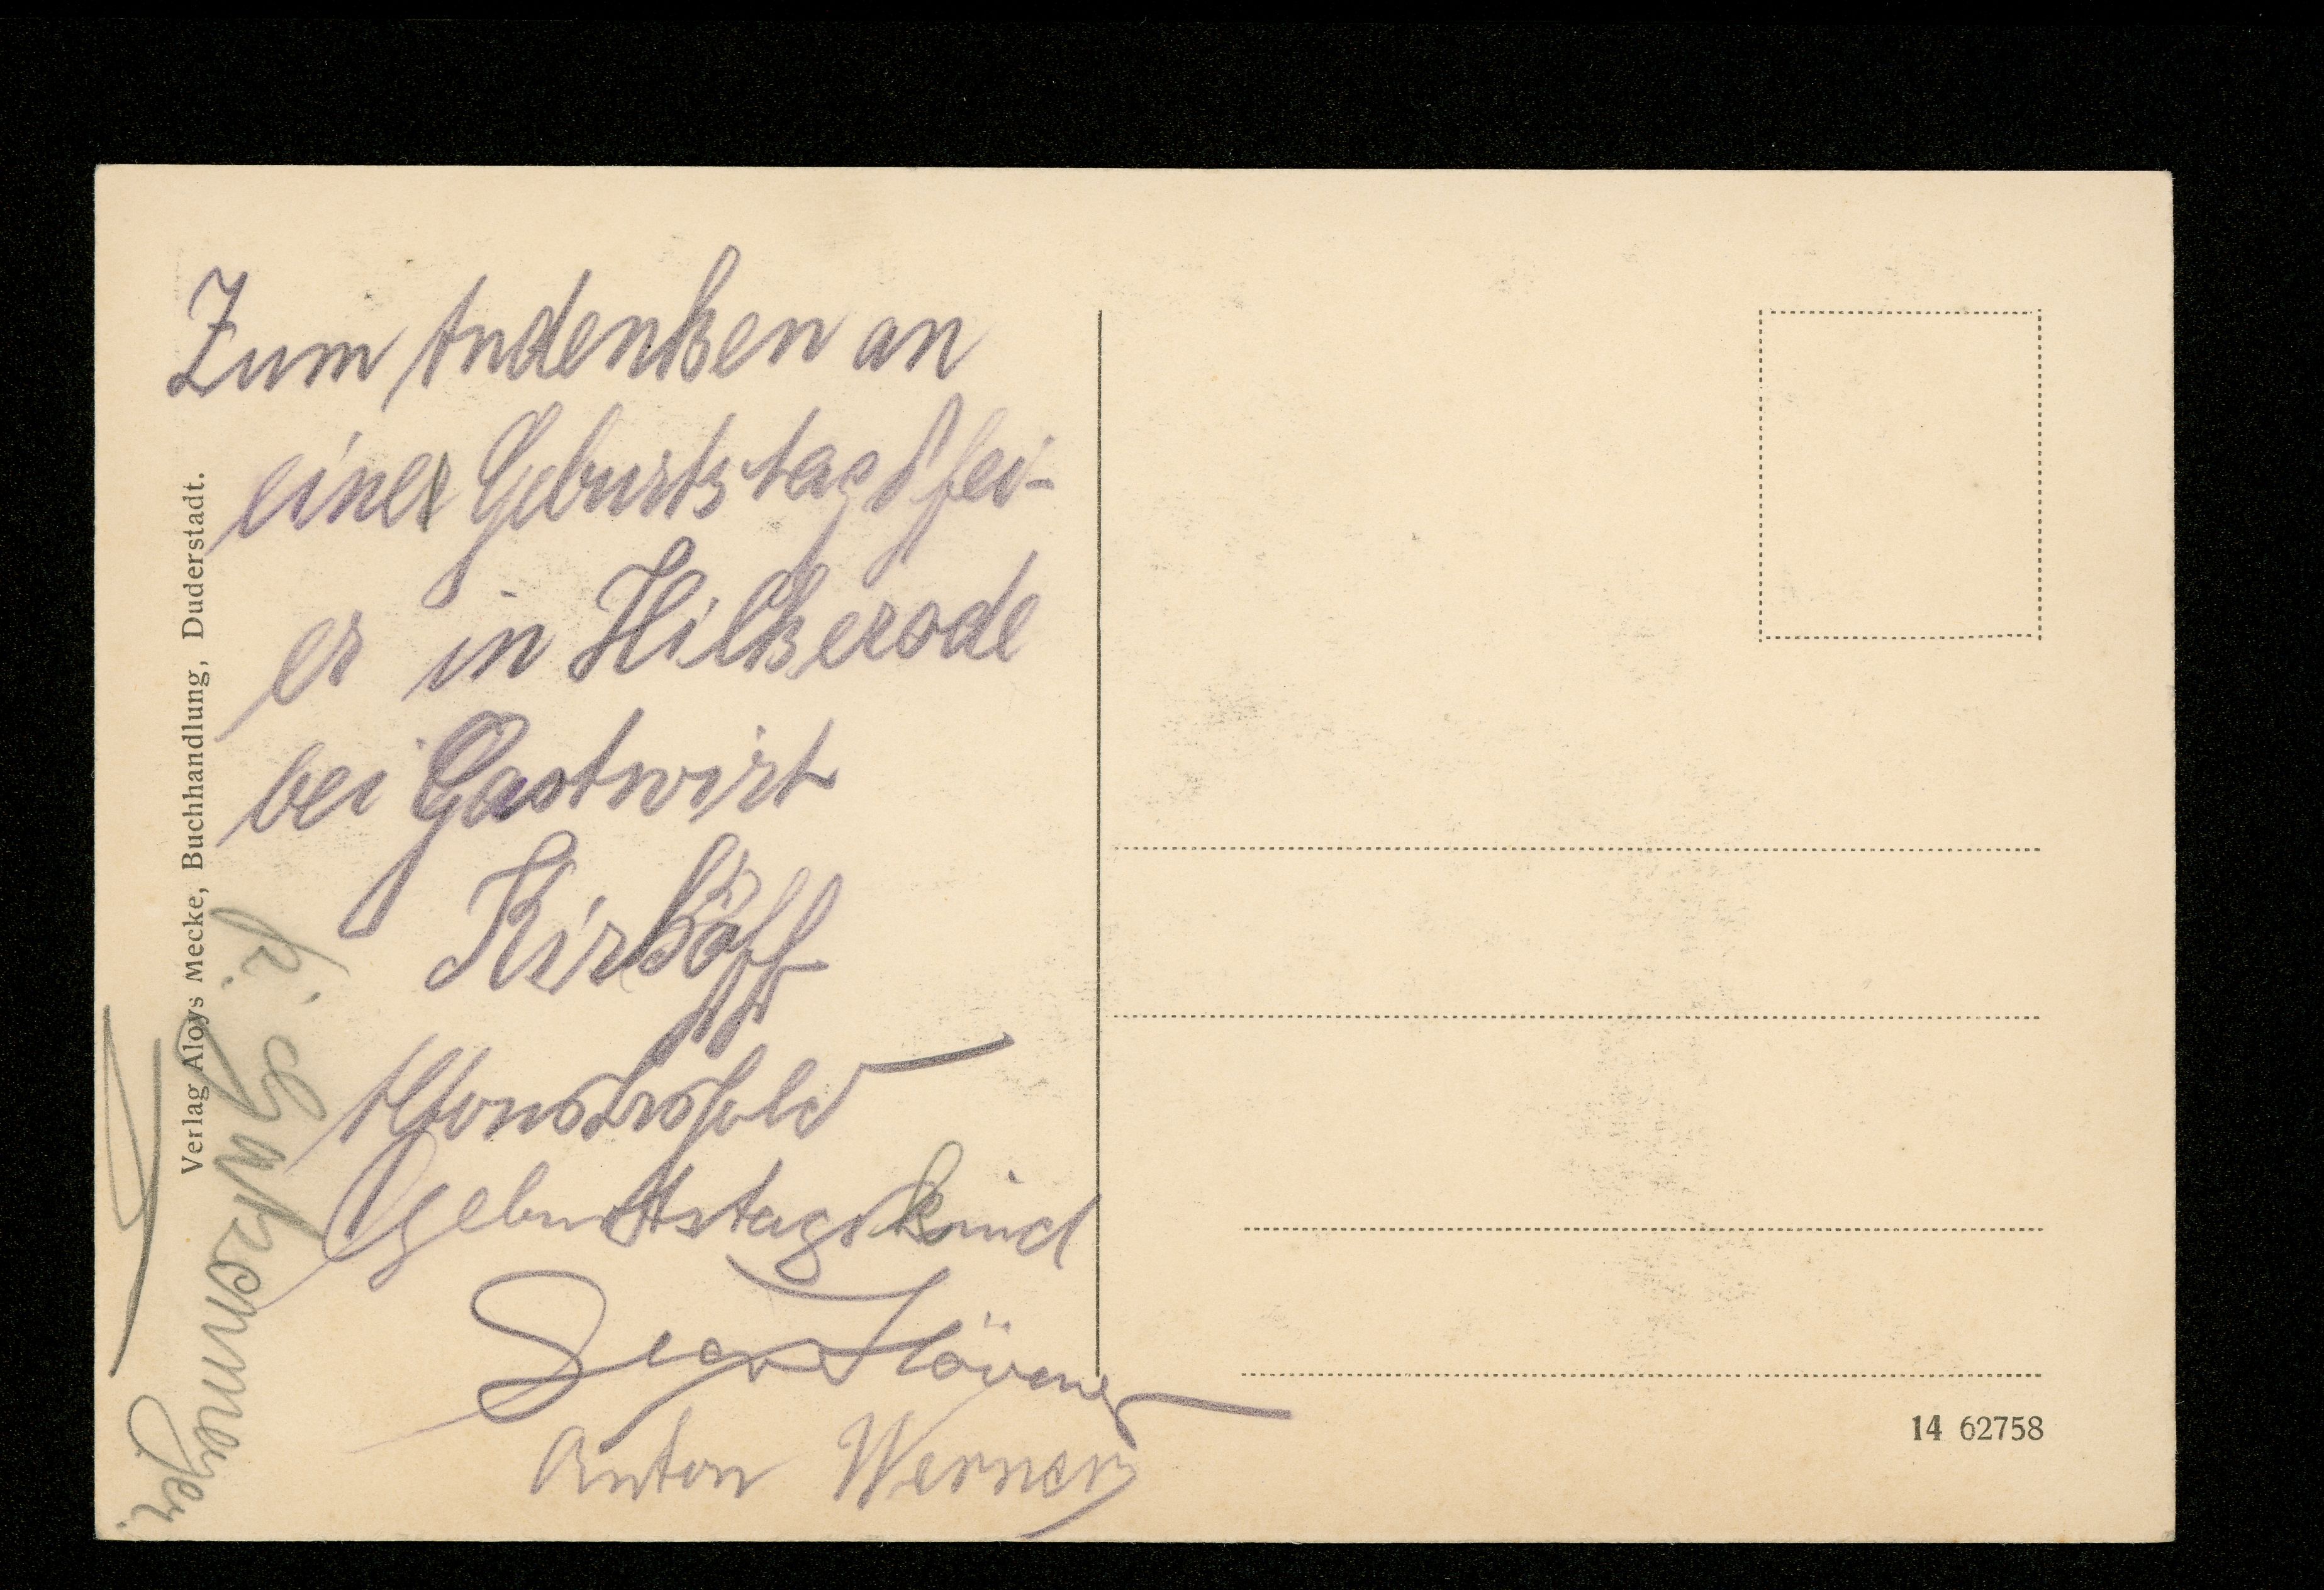 Zum Andenken an
einer Geburtstagsfei-
er in Hilkerode
bei Gastwirt
Kirköff
Geburtstagskind
Anton Werner
Verlag Aloys Mecke, Buchhandlung, Duderstadt.
14 62758